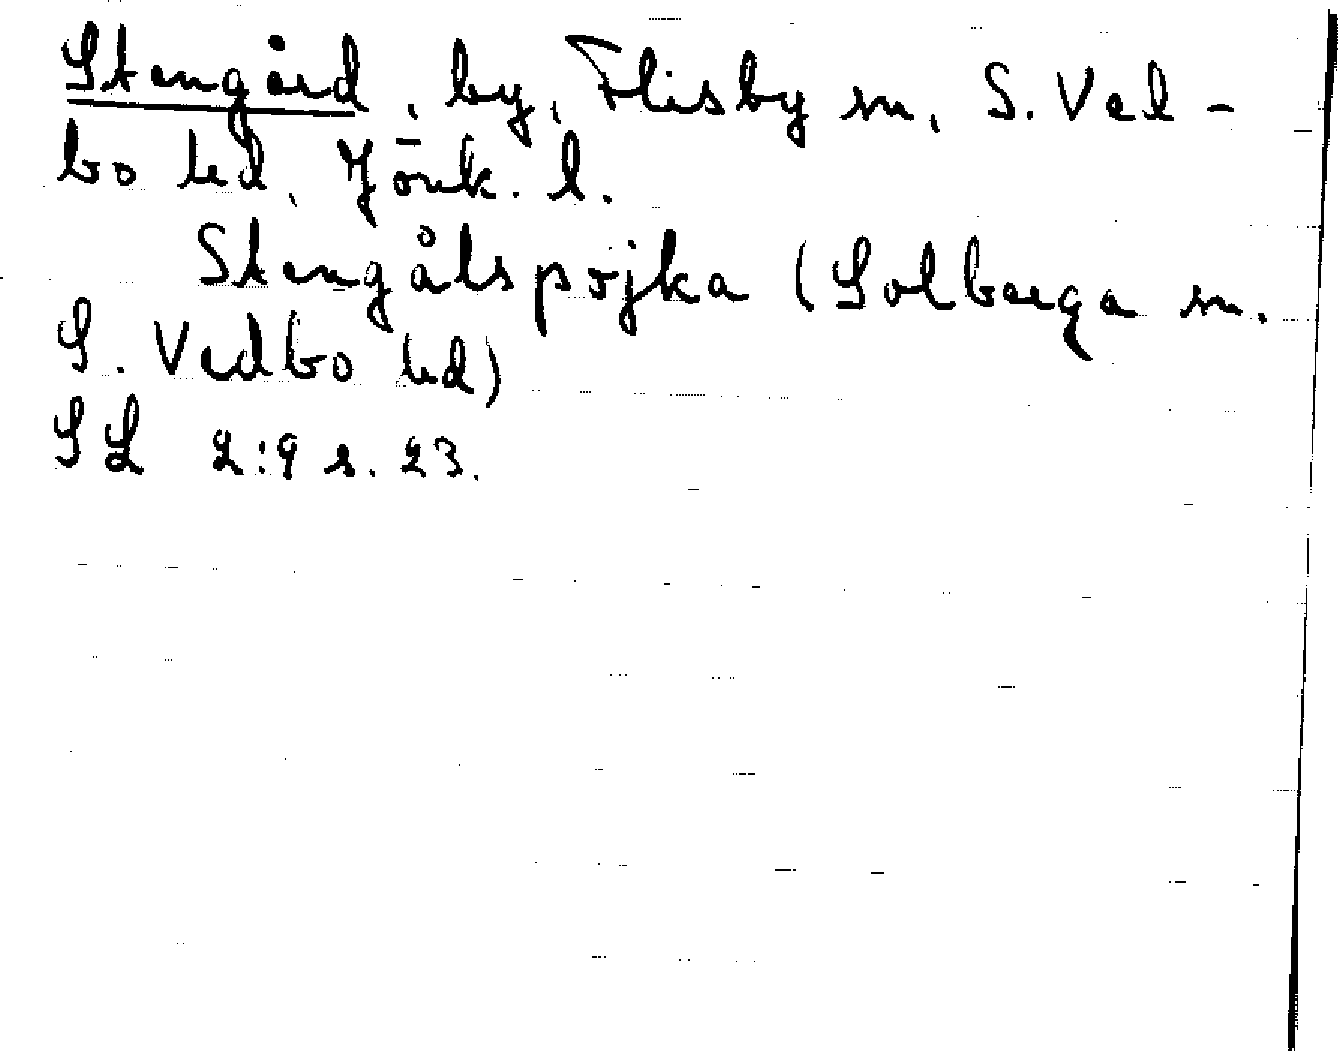 Stengård, by, Flisby sn, S. Ved-
bo hd, Jönk. l.
Stengålspojka (Solberga sn.
S. Vedbo hd)
SL 2:9 s. 23.